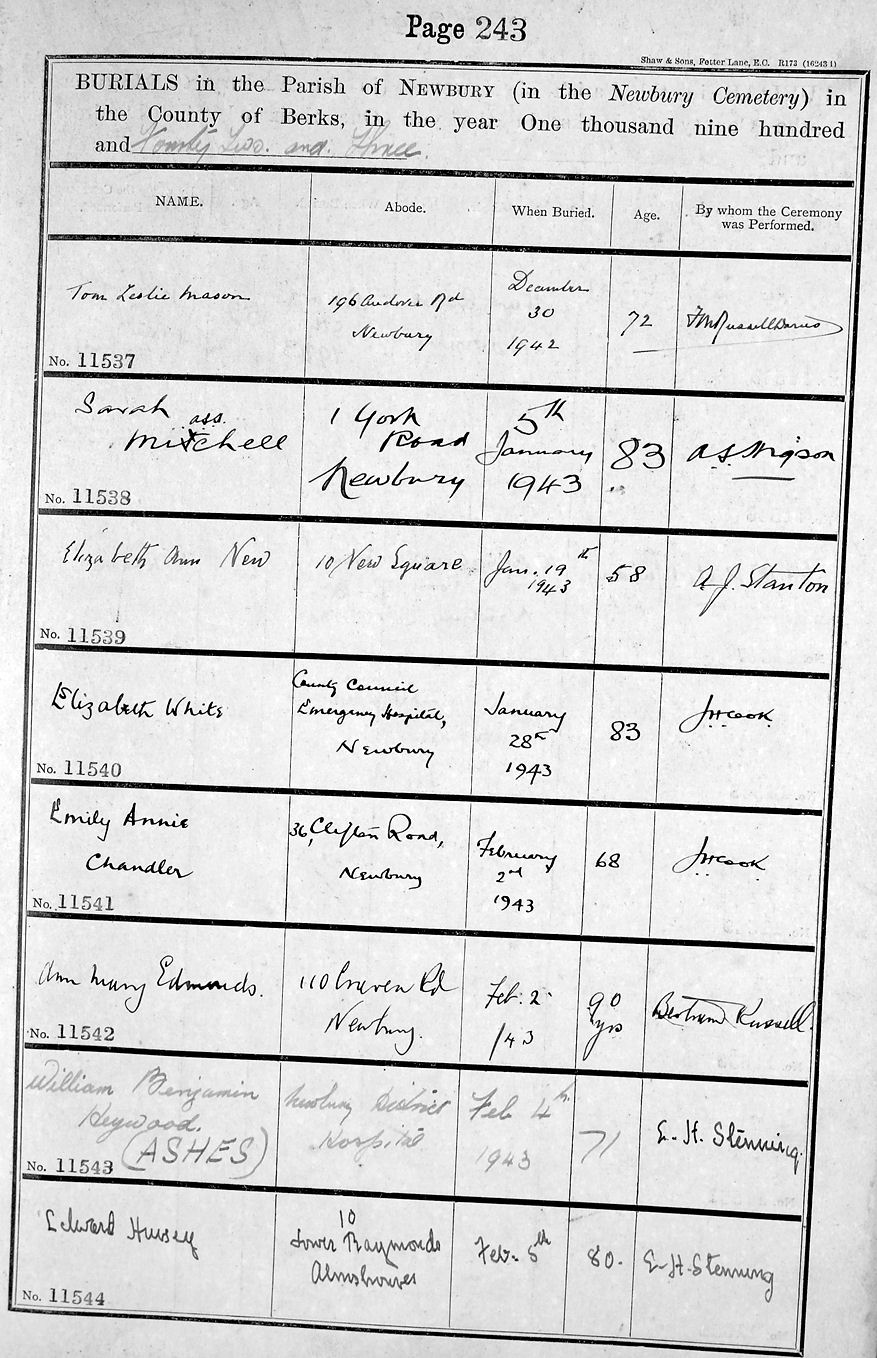 Page 243
Shaw & Sons, Fetter Lane, E.C. R173 (16243 1)
BURIALS in the Parish of NEWBURY (in the Newbury Cemetery) in
the County of Berks, in the year One thousand nine hundred
and Fourty Two. and Three.
NAME.
Abode.
When Buried.
Age.
By whom the Ceremony
was Performed.
Tom Leslie Mason
No. 11537
196 Andover Rd
Newbury
December
30
1942
72
Sarah
Mitchell
No. 11538
1 York
Road
Newbury
5th
January
1943
83
Elizabeth Ann New
No. 11539
10 New Square
Jan. 19th
1943
58
A. J. Stanton
Elizabeth White
No. 11540
County Council
Emergency Hospital,
Newbury
January
28th
1943
83
JH Cook
Emily Annie
Chandler
No. 11541
36, Clifton Road,
Newbury
February
2nd
1943
68
JH Cook
Ann Mary Edmunds.
No. 11542
110 Craven Rd
Newbury.
Feb. 2
/43
90
yrs
Bertram Russell.
William Benjamin
Heywood.
(ASHES)
No. 11543
Newbury District
Hospital
Feb 4th
1943
71
E. H. Stenning.
Edward Hussey
No. 11544
10
Lower Raymonds
Almshouses
Feb. 5th
80.
E-H-Stenning